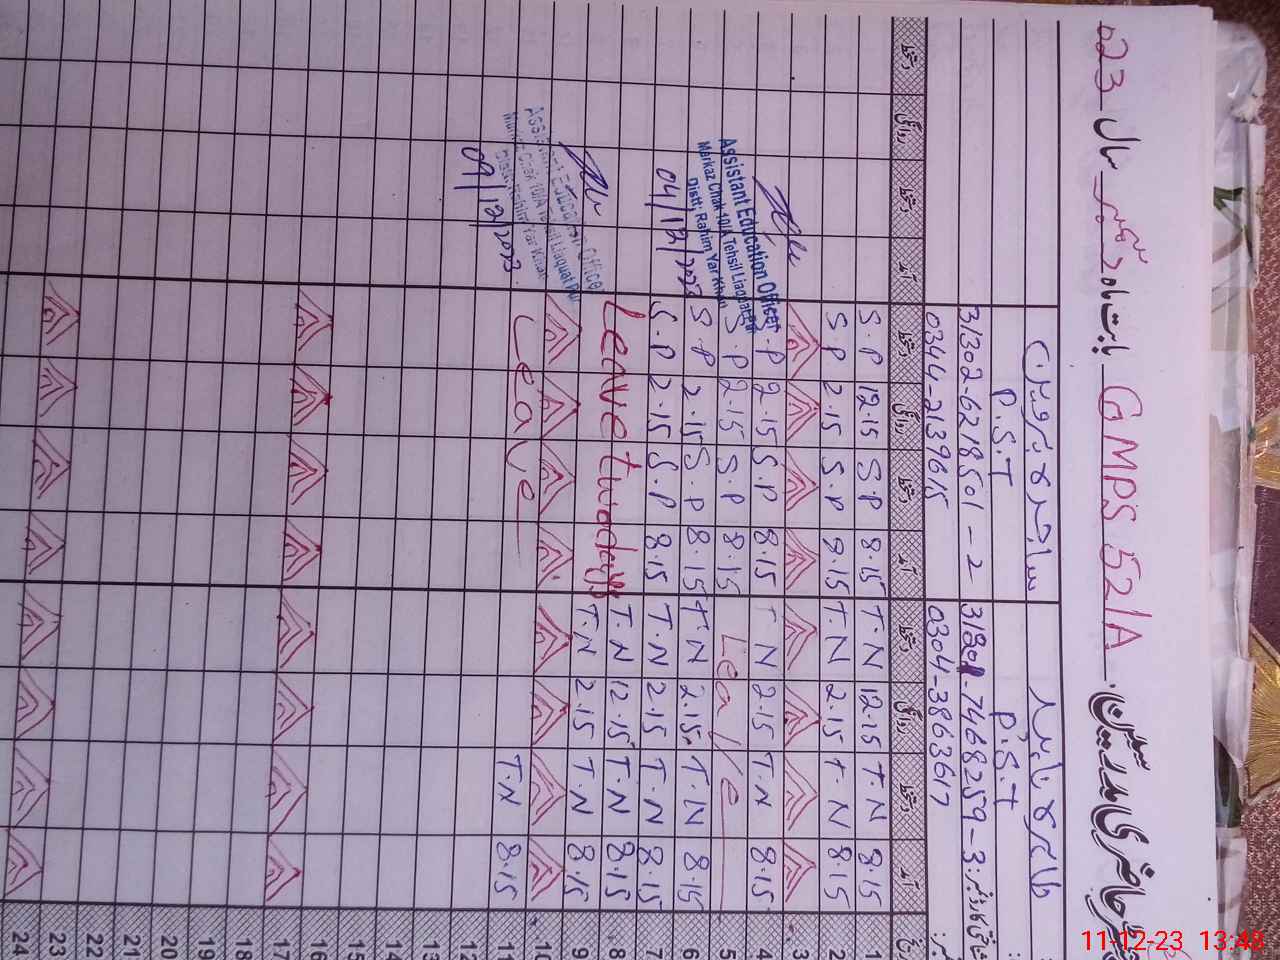 حاضری مدرسین GMPS 52/A بابت ماہ دسمبر سال 023
طاہرہ ناہید ساجدہ پروین
P.S.T P.S.T
شناختی کارڈ نمبر: 31301-7468259-3 31302-6218501-2
0304-3863617 0344-2139615
آمد دستخط روانگی دستخط آمد دستخط روانگی دستخط آمد دستخط روانگی دستخط
1 8.15 T.N 12.15 T.N 8.15 S.P 12.15 S.P
2 8.15 T.N 2.15 T.N 8.15 S.P 2.15 S.P
3
4 8.15 T.N 2.15 T.N 8.15 S.P 2.15 S.P
5 Leave 8.15 S.P 2.15 S.P
6 8.15 T.N 2.15 T.N 8.15 S.P 2.15 S.P
7 8.15 T.N 2.15 T.N 8.15 S.P 2.15 S.P
8 8.15 T.N 12.15 T.N Leave two days
9 8.15 T.N 2.15 T.N
10
11 8.15 T.N Leave
Assistant Education Officer
Markaz Chak 10/A Tehsil Liaquatpur
Distt: Rahim Yar Khan
04/12/2023
Assistant Education Officer
Markaz Chak 10/A Tehsil Liaquat Pur
Distt: Rahim Yar Khan
09/12/2023
12
13
14
15
16
17
18
19
20
21
22
23
24
11-12-23 13:48